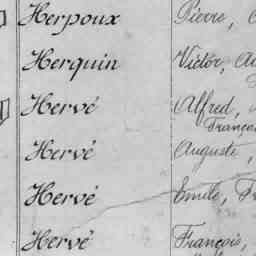 Herpoux Pierre,
Herquin Victor,
Hervé Alfred,
Hervé Auguste,
Hervé Emile,
Hervé François,